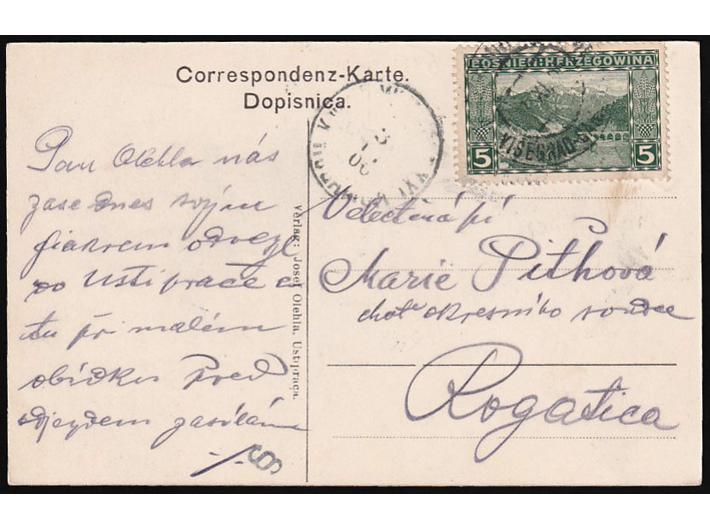 Correspondenz-Karte.
Dopisnica.
BOSNIEN-HERZEGOWINA
5 5
VISEGRAD
Pan Olehla nás
zase dnes svým
fiakrem odvezl
do Ustiprače a
tu při malém
obídku před
odjezdem zasílám
Verlag: Josef Olehla, Ustipraca.
Velectěná pí
Marie Pithová
choť okresního soudce
Rogatica